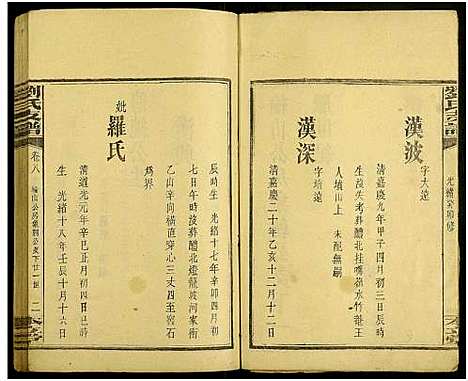 劉氏支譜
光緒癸卯修
漢波
字大遠
清嘉慶九年甲子四月初三日辰時
生沒失考葬醴北桂嘴嶺水竹
人墳山上 未配無嗣
漢深
字靖遠
清嘉慶二十年乙亥十二月十二日
辰時生 光緒十七年辛卯四月初
七日午時沒葬醴北燈龍坡河家衝
乙山辛向橫直穿心三丈四至窖石
為界
妣
羅氏
清道光元年辛巳正月初四日巳時
生 光緒十八年壬辰十月十六日
劉氏支譜
卷八
二